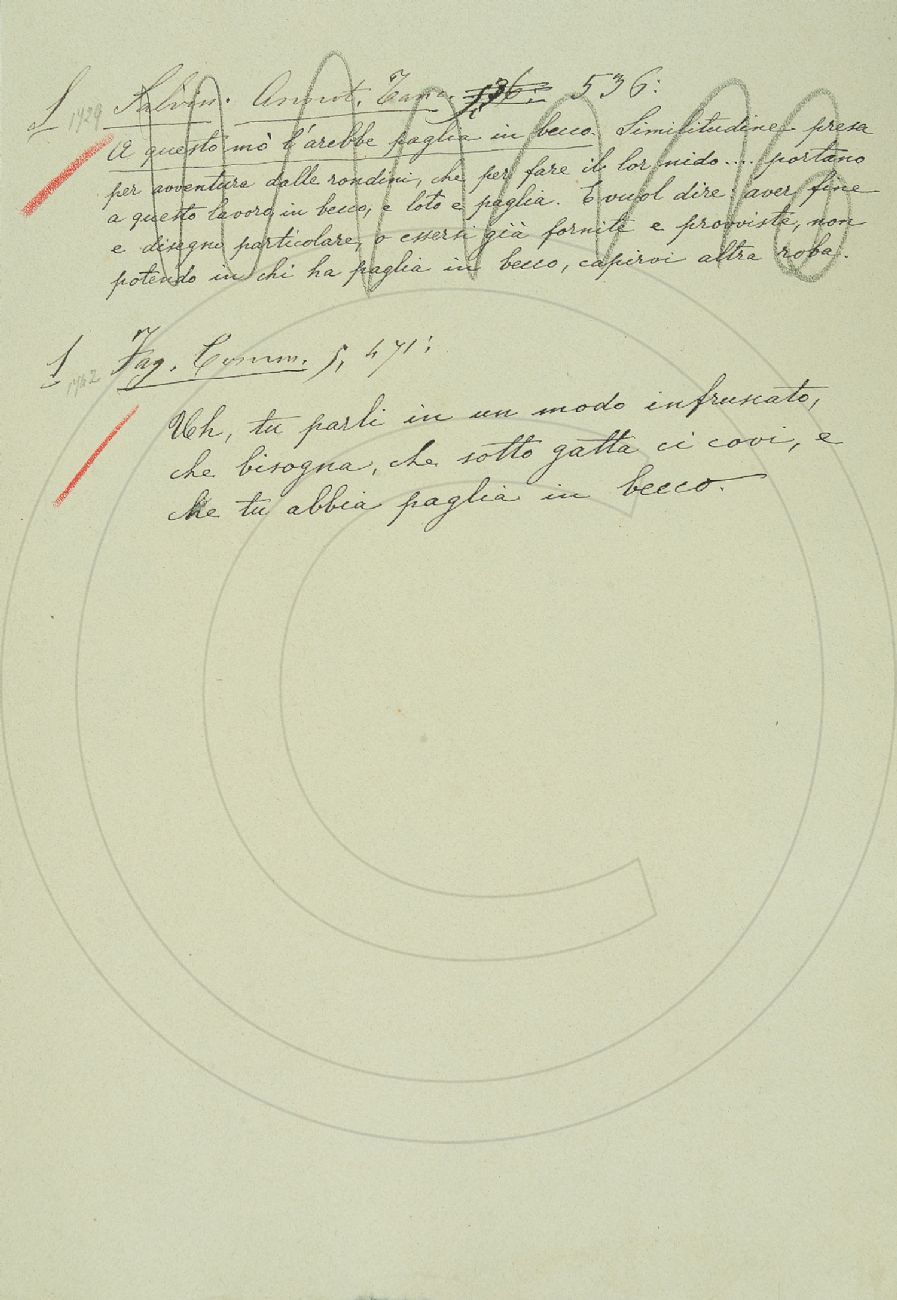 S 1729 Salvin. Annot. Tanc. 536:
A questo mò l'arebbe paglia in becco. Similitudine presa
per avventura dalle rondini, che per fare il lor nido.... portano
a questo lavoro in becco, e loto e paglia. E vuol dire: aver fine
e disegno particolare, o essersi già fornite e provviste, non
potendo in chi ha paglia in becco, capirvi altra roba.
S 1762 Fag. Comm. 5, 471:
Uh, tu parli in un modo infruscato,
che bisogna, che sotto gatta ci covi, e
che tu abbia paglia in becco.